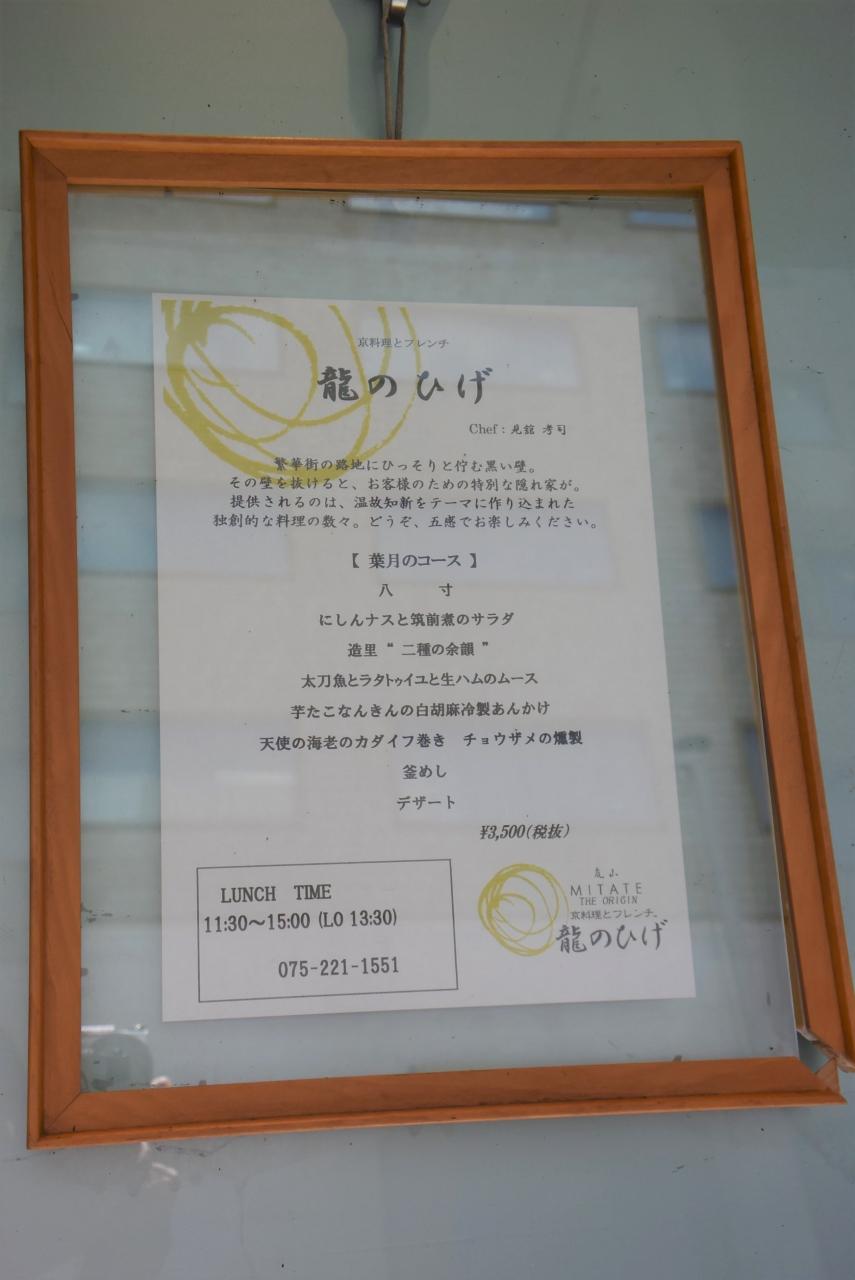 京料理とフレンチ
龍のひげ
Chef : 見舘 孝司
繁華街の路地にひっそりと佇む黒い壁。
その壁を抜けると、お客様のための特別な隠れ家が。
提供されるのは、温故知新をテーマに作り込まれた
独創的な料理の数々。どうぞ、五感でお楽しみください。
【 葉月のコース 】
八 寸
にしんナスと筑前煮のサラダ
造里 “ 二種の余韻 ”
太刀魚とラタトゥイユと生ハムのムース
芋たこなんきんの白胡麻冷製あんかけ
天使の海老のカダイフ巻き チョウザメの燻製
釜めし
デザート
¥3,500(税抜)
LUNCH TIME
11:30～15:00 (LO 13:30)
075-221-1551
嵐山
MITATE
THE ORIGIN
京料理とフレンチ。
龍のひげ